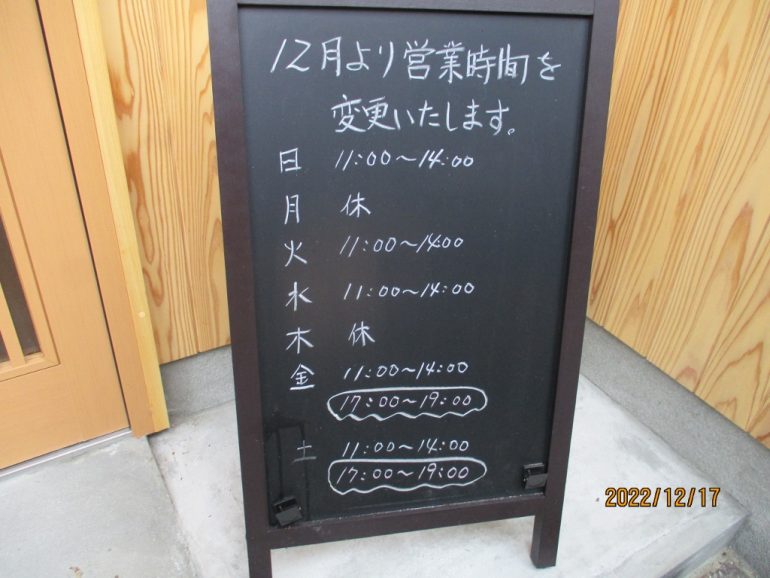 12月より営業時間を
変更いたします。
日 11:00～14:00
月 休
火 11:00～14:00
水 11:00～14:00
木 休
金 11:00～14:00
17:00～19:00
土 11:00～14:00
17:00～19:00
2022/12/17